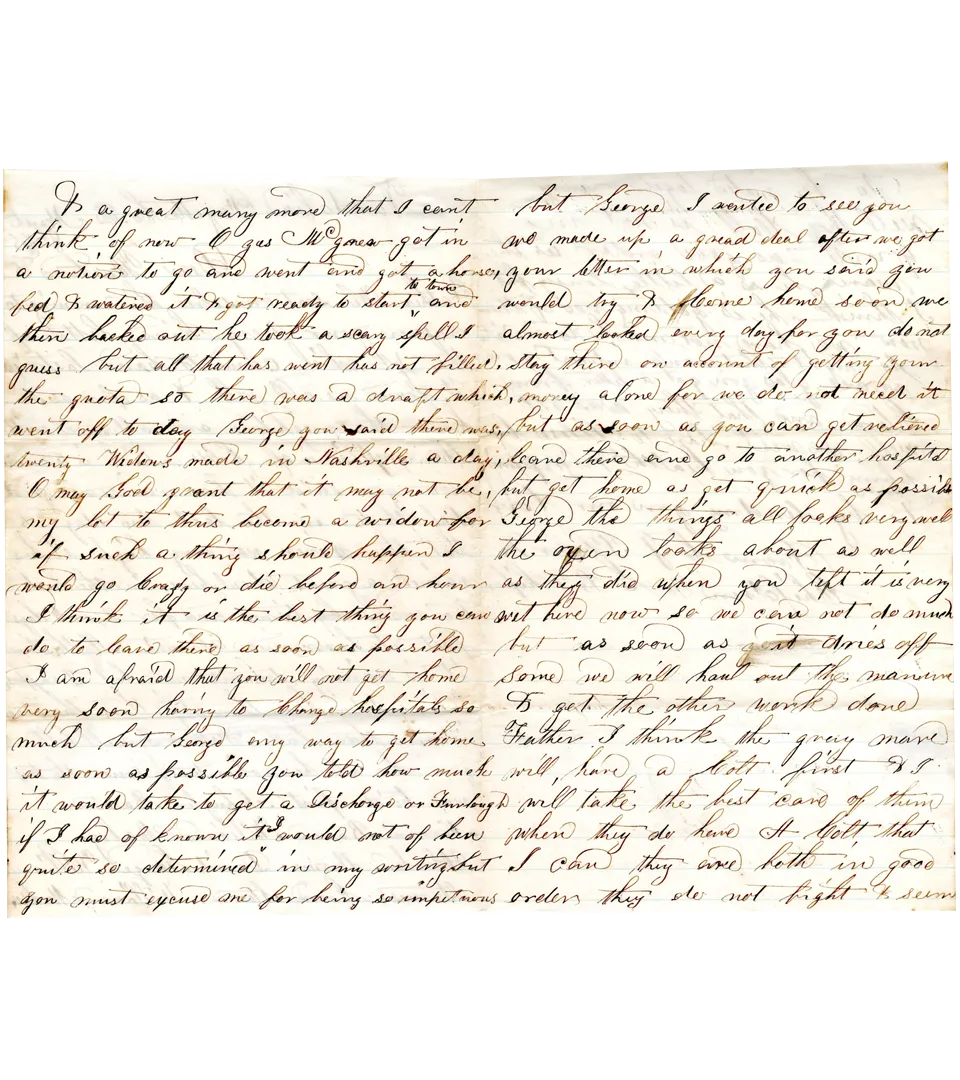 & a great many more that I cant
think of now O gus McGrew got in
a notion to go and went and got a horse,
fed & watered it & got ready to start to town and
then backed out he took a scary spell I
guess but all that has went has not filled,
the quota so there was a draft which,
went off to day George you said there was,
twenty Widows made in Nashville a day,
O may God grant that it may not be,
my lot to thus become a widow for
if such a thing should happen I
would go Crazy or die before an hour
I think it is the best thing you can
do to leave there as soon as possible
I am afraid that you will not get home
very soon having to Change hospitals so
much but George any way to get home
as soon as possible you told how much
it would take to get a Discharge or Furlough
if I had of known it I would not of been
quite so determined in my writing but
you must excuse me for being so impetuous
but George I wanted to see you
we made up a gread deal after we got
your letter in which you said you
would try & Come home soon we
almost looked every day for you do not
stay there on account of getting your
money alone for we do not need it
but as soon as you can get relieved
leave there and go to another hospital
but get home as get quick as possible
George the things all looks very well
the oxen looks about as well
as they did when you left it is very
wet here now so we can not do much
but as soon as it dries off
some we will haul out the manure
& get the other work done
Father I think the gray mare
will have a Colt first & I
will take the best care of them
when they do have A Colt that
I can they are both in good
order they do not fight & seem